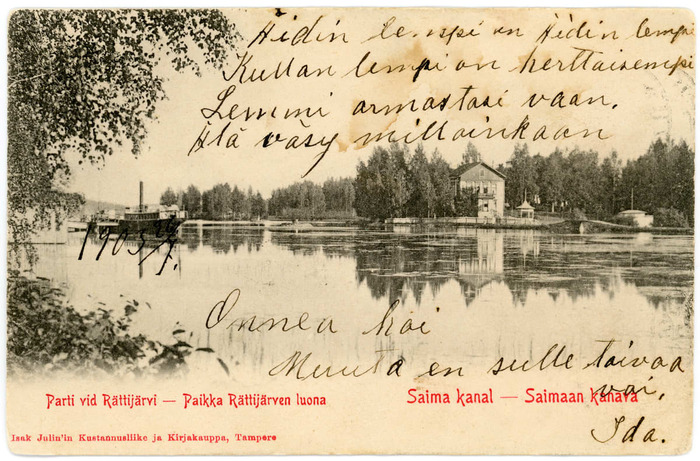 Äidin lempi on Äidin lempi
Kullan lempi on herttaisempi
Lemmi armastasi vaan.
Älä väsy milloinkaan
1903 24/7.
Onnea koi
Muuta en sulle toivaa
voi,
Ida.
Parti vid Rättijärvi — Paikka Rättijärven luona
Saima kanal — Saimaan kanava
Isak Julin'in Kustannusliike ja Kirjakauppa, Tampere